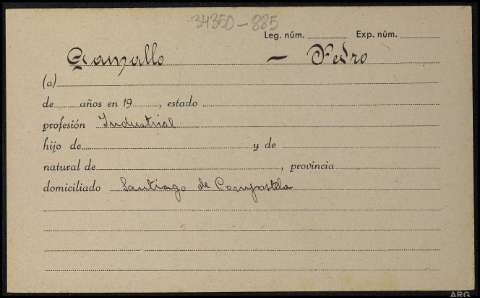 34350-885
Leg. núm. Exp. núm.
Gamallo - Pedro
(a)
de años en 19 , estado
profesión Industrial
hijo de y de
natural de , provincia
domiciliado Santiago de Compostela
ARG